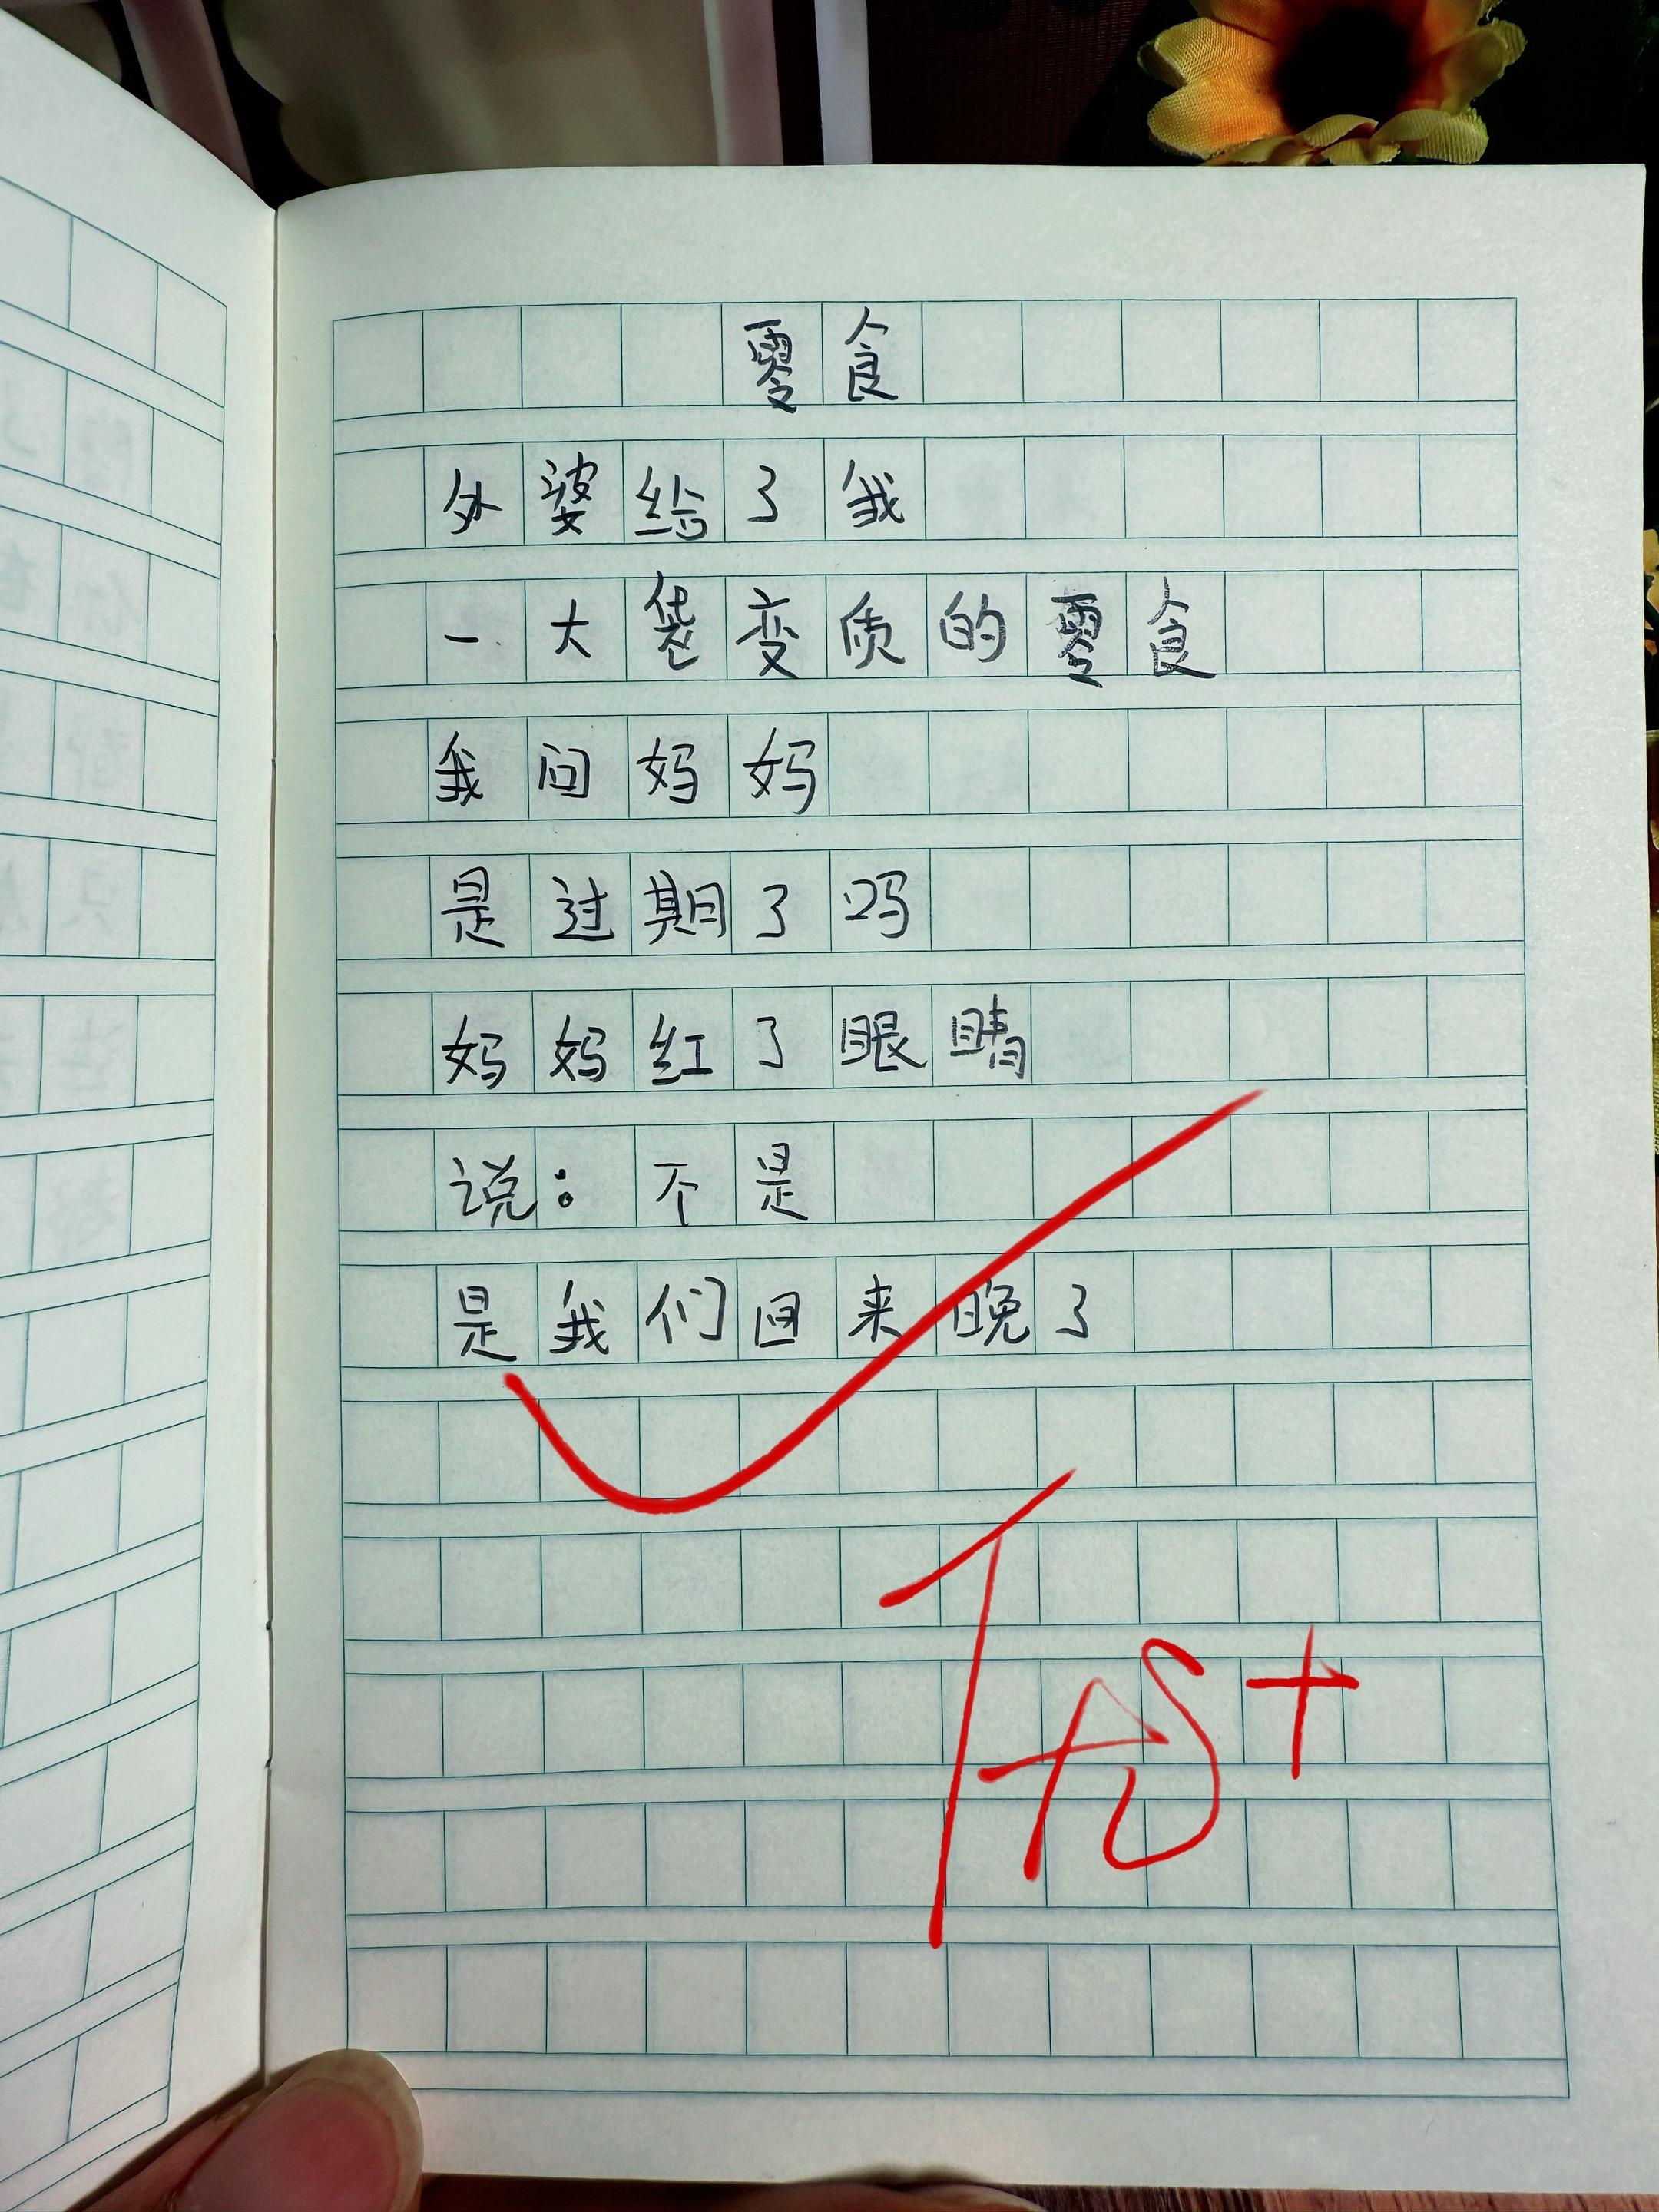 零食
外婆给了我
一大袋变质的零食
我问妈妈
是过期了吗
妈妈红了眼睛
说：不是
是我们回来晚了